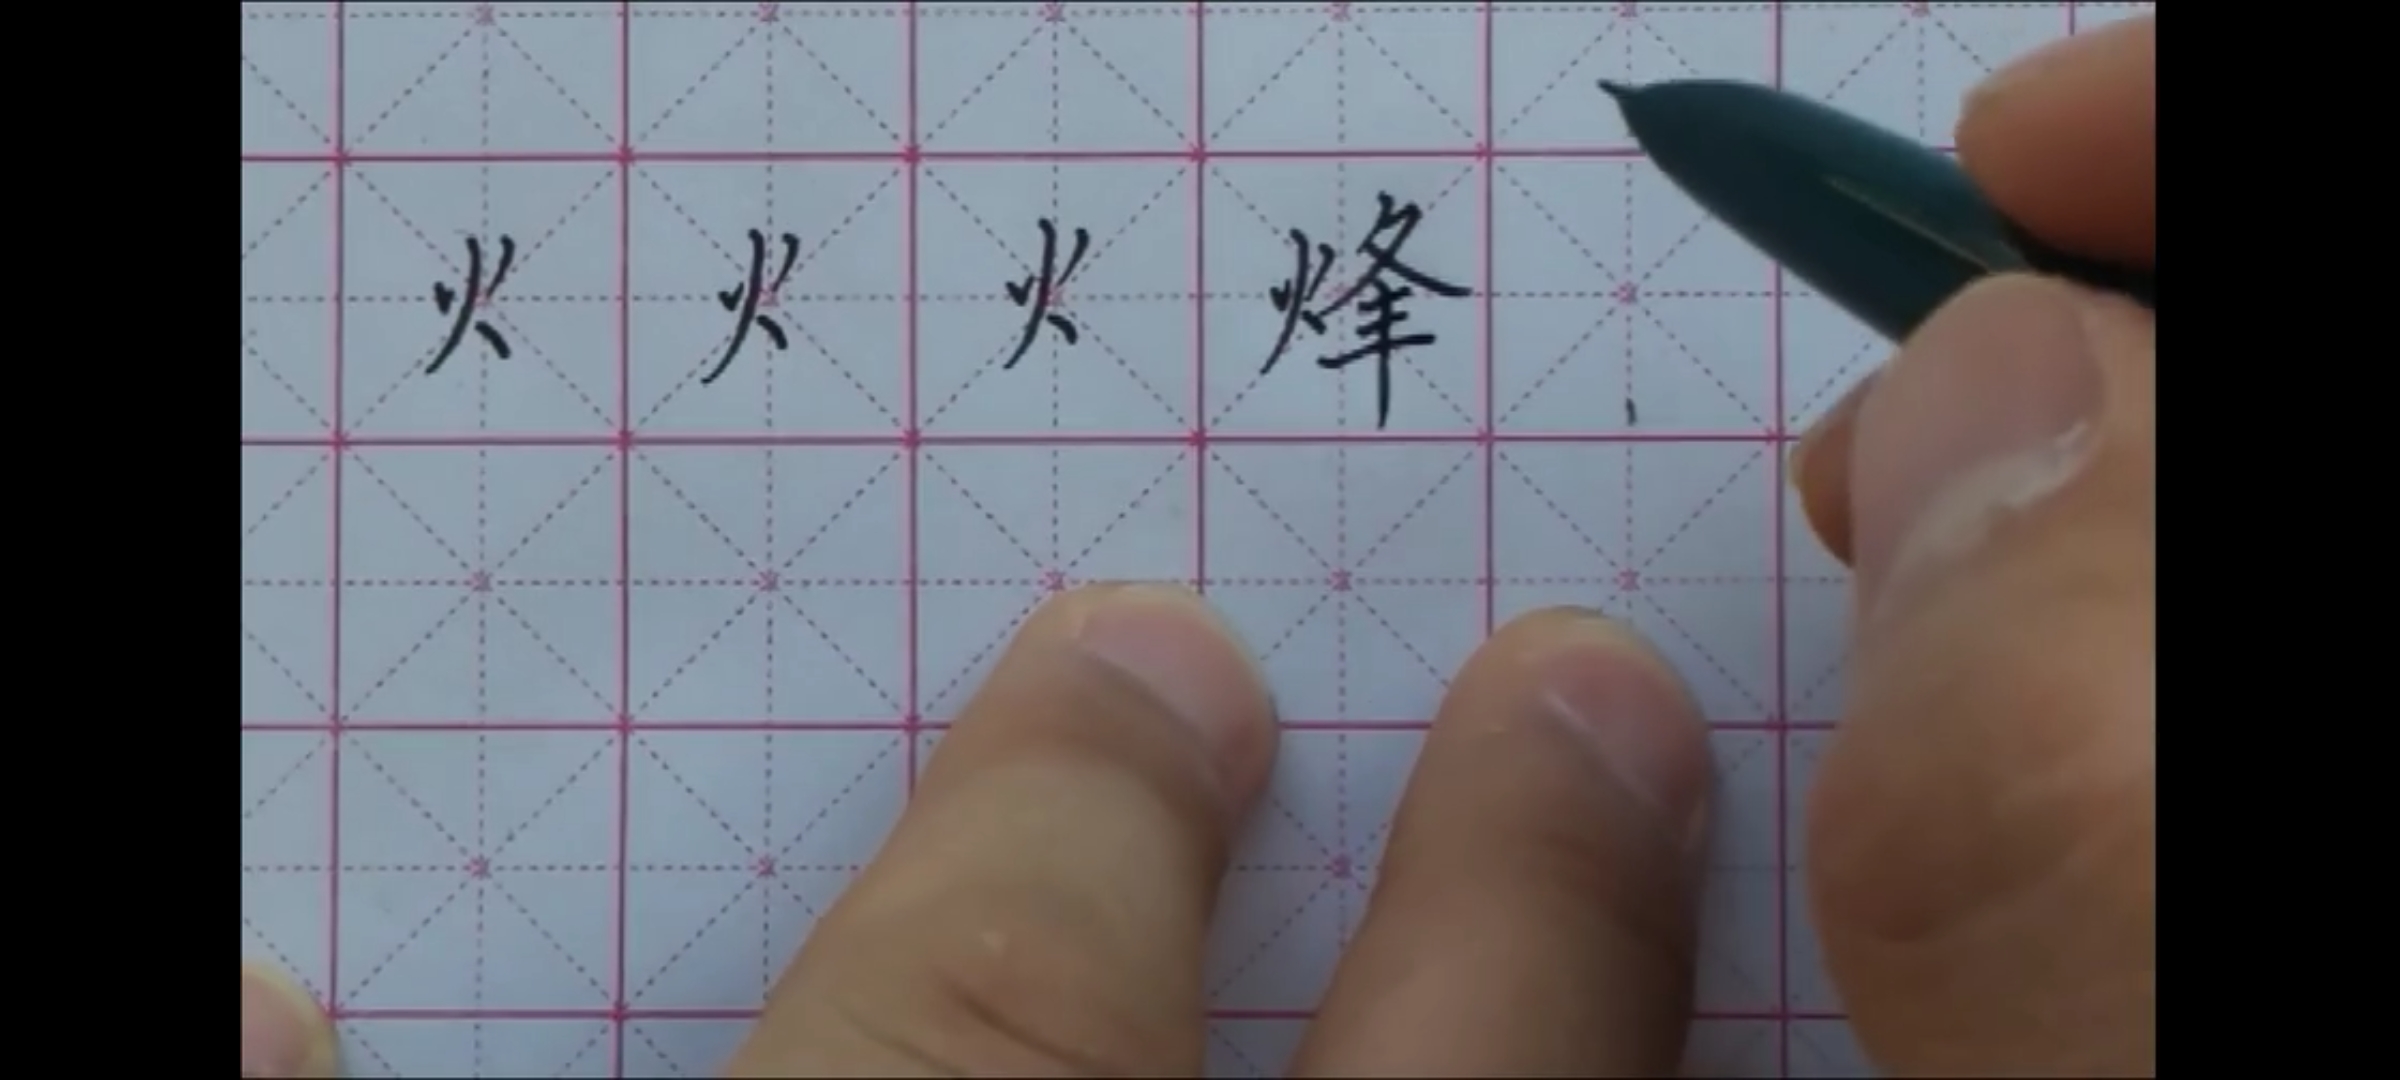 火火火烽